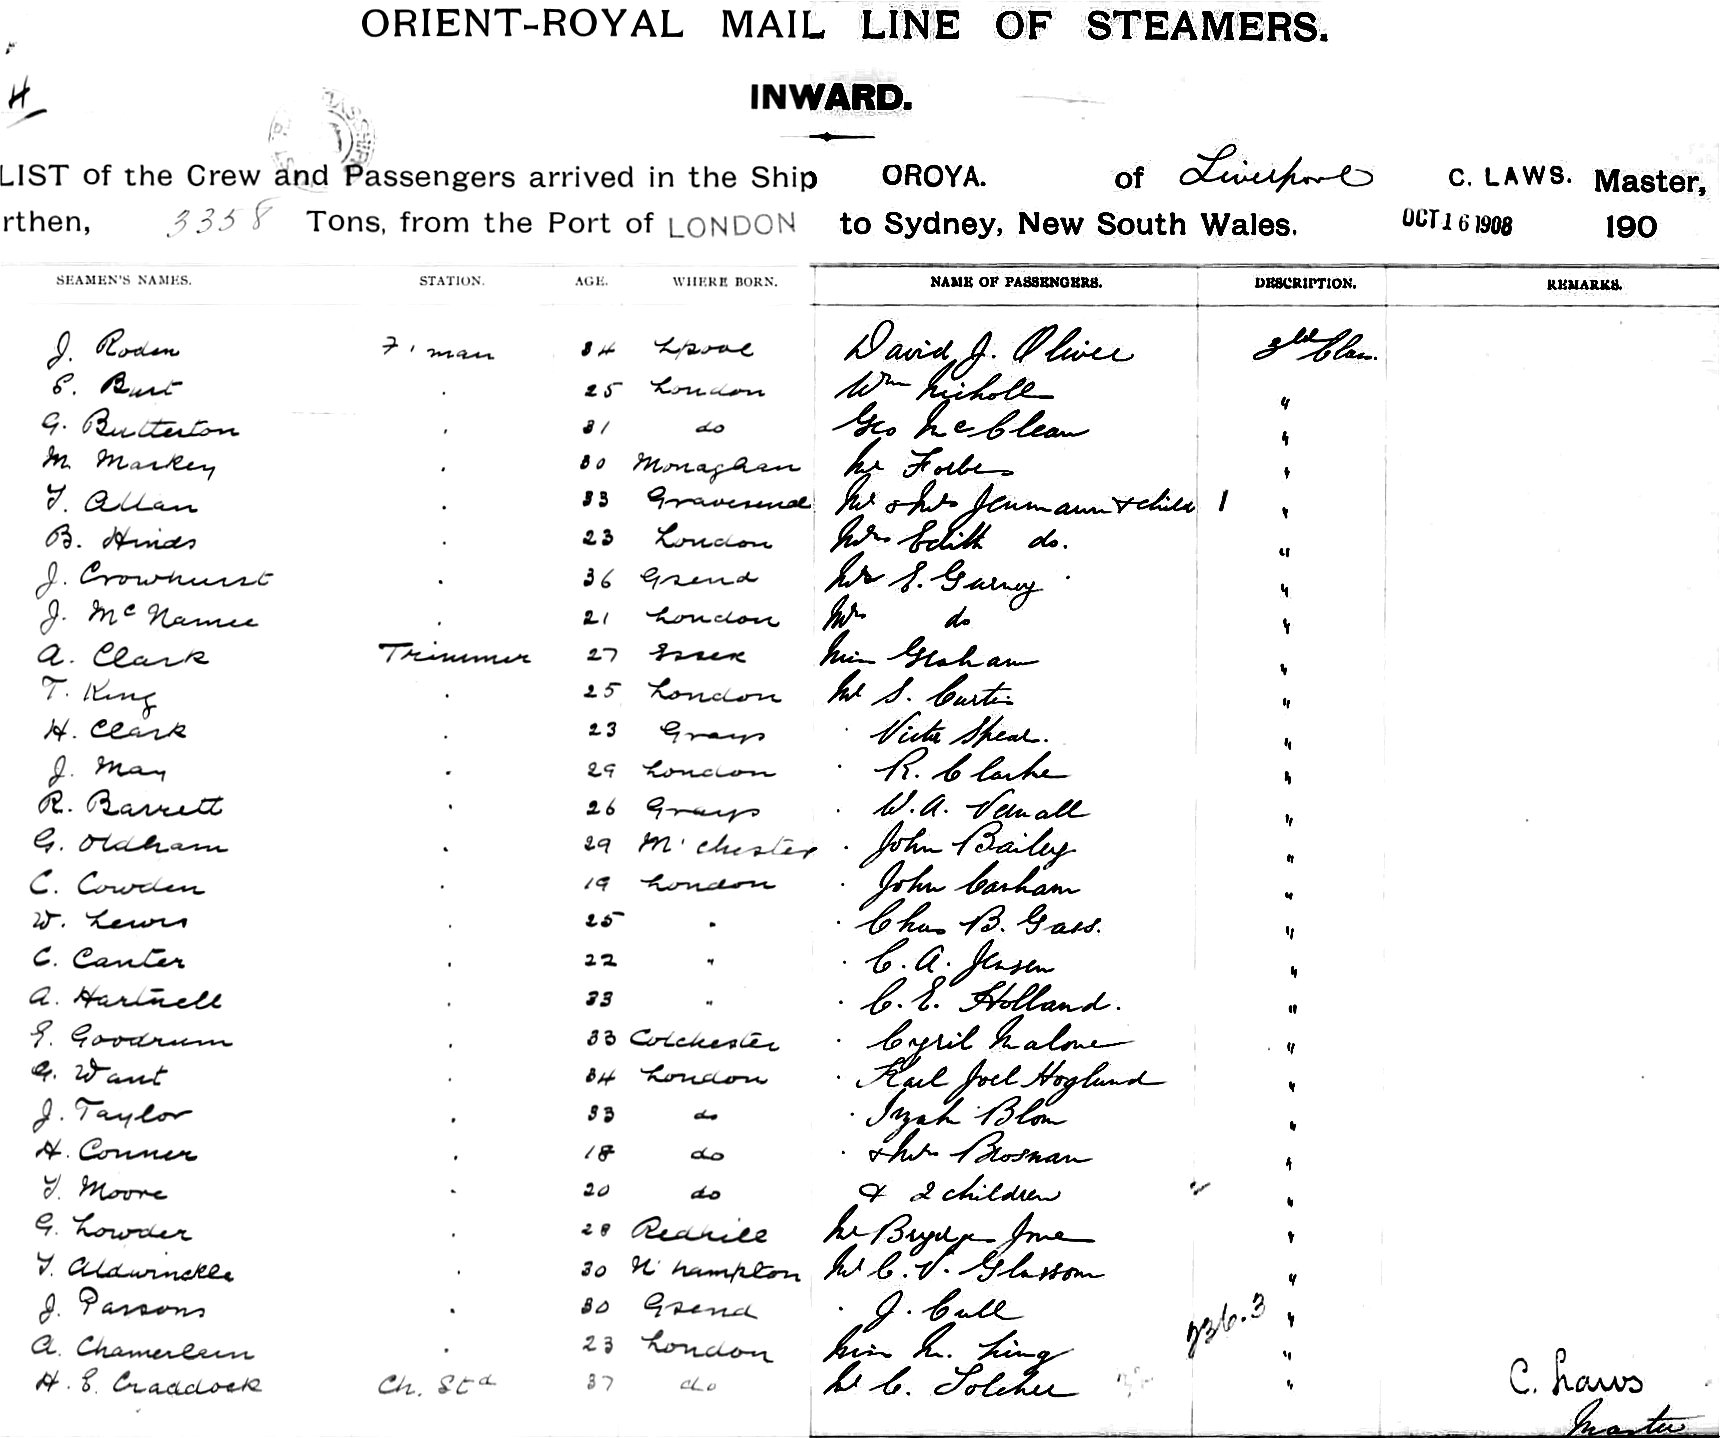 ORIENT-ROYAL MAIL LINE OF STEAMERS.
H
INWARD.
LIST of the Crew and Passengers arrived in the Ship OROYA. of Liverpool C. LAWS. Master,
rthen, 3358 Tons, from the Port of LONDON to Sydney, New South Wales. OCT 16 1908 190
SEAMEN'S NAMES. STATION. AGE. WHERE BORN. NAME OF PASSENGERS. DESCRIPTION. REMARKS.
J. Roden F'man 34 Lpool David J. Oliver 3rd Class.
E. Burt . 25 London Wm Nicholls "
G. Butterton . 31 do Geo McClean "
M. Markey . 30 Monaghan Mr Forbes "
T. Allan . 33 Gravesend Mr & Mrs Jeumann & child 1 "
B. Hinds . 23 London Mrs Edith do. "
J. Crowhurst . 36 Gsend Mr E. Gurney "
J. McNamee . 21 London Mrs do "
A. Clark Trimmer 27 Essex Miss Graham "
T. King . 25 London Mr S. Curtis "
H. Clark . 23 Grays . Victor Spear. "
J. May . 29 London . R. Clarke "
R. Barrett . 26 Grays . W. A. Vernall "
G. Oldham . 29 M'chester . John Bailey "
C. Cowden . 19 London . John Carham "
W. Lewis . 25 . . Chas B. Gass. "
C. Canter . 22 " . C. A. Jensen "
A. Hartnell . 33 " . C. E. Holland. "
E. Goodrum . 33 Colchester . Cyril Malone "
G. Want . 34 London . Karl Joel Hoglund "
J. Taylor . 33 do . Izak Blom "
H. Conner . 18 do . & Mrs Brosnan "
T. Moore . 20 do & 2 children 2 "
G. Lowder . 28 Redhill Mr Brydges Jones "
T. Aldwinckle . 30 N'hampton Mr C. V. Glassom "
J. Parsons . 30 Gsend . J. Cull 236.3 "
A. Chamerlain . 23 London Miss M. King "
H. E. Craddock Ch. Std 37 do Mr C. Tolcher " C. Laws
Master